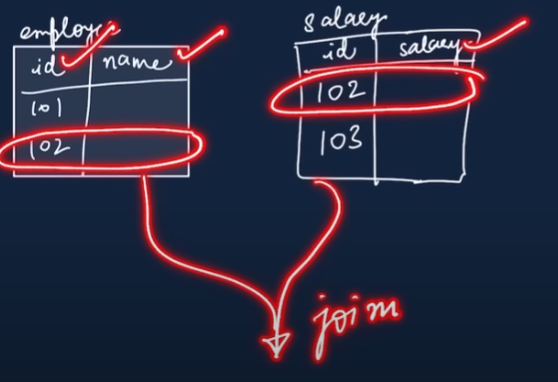 employe
id name
101
102
salary
id salary
102
103
join